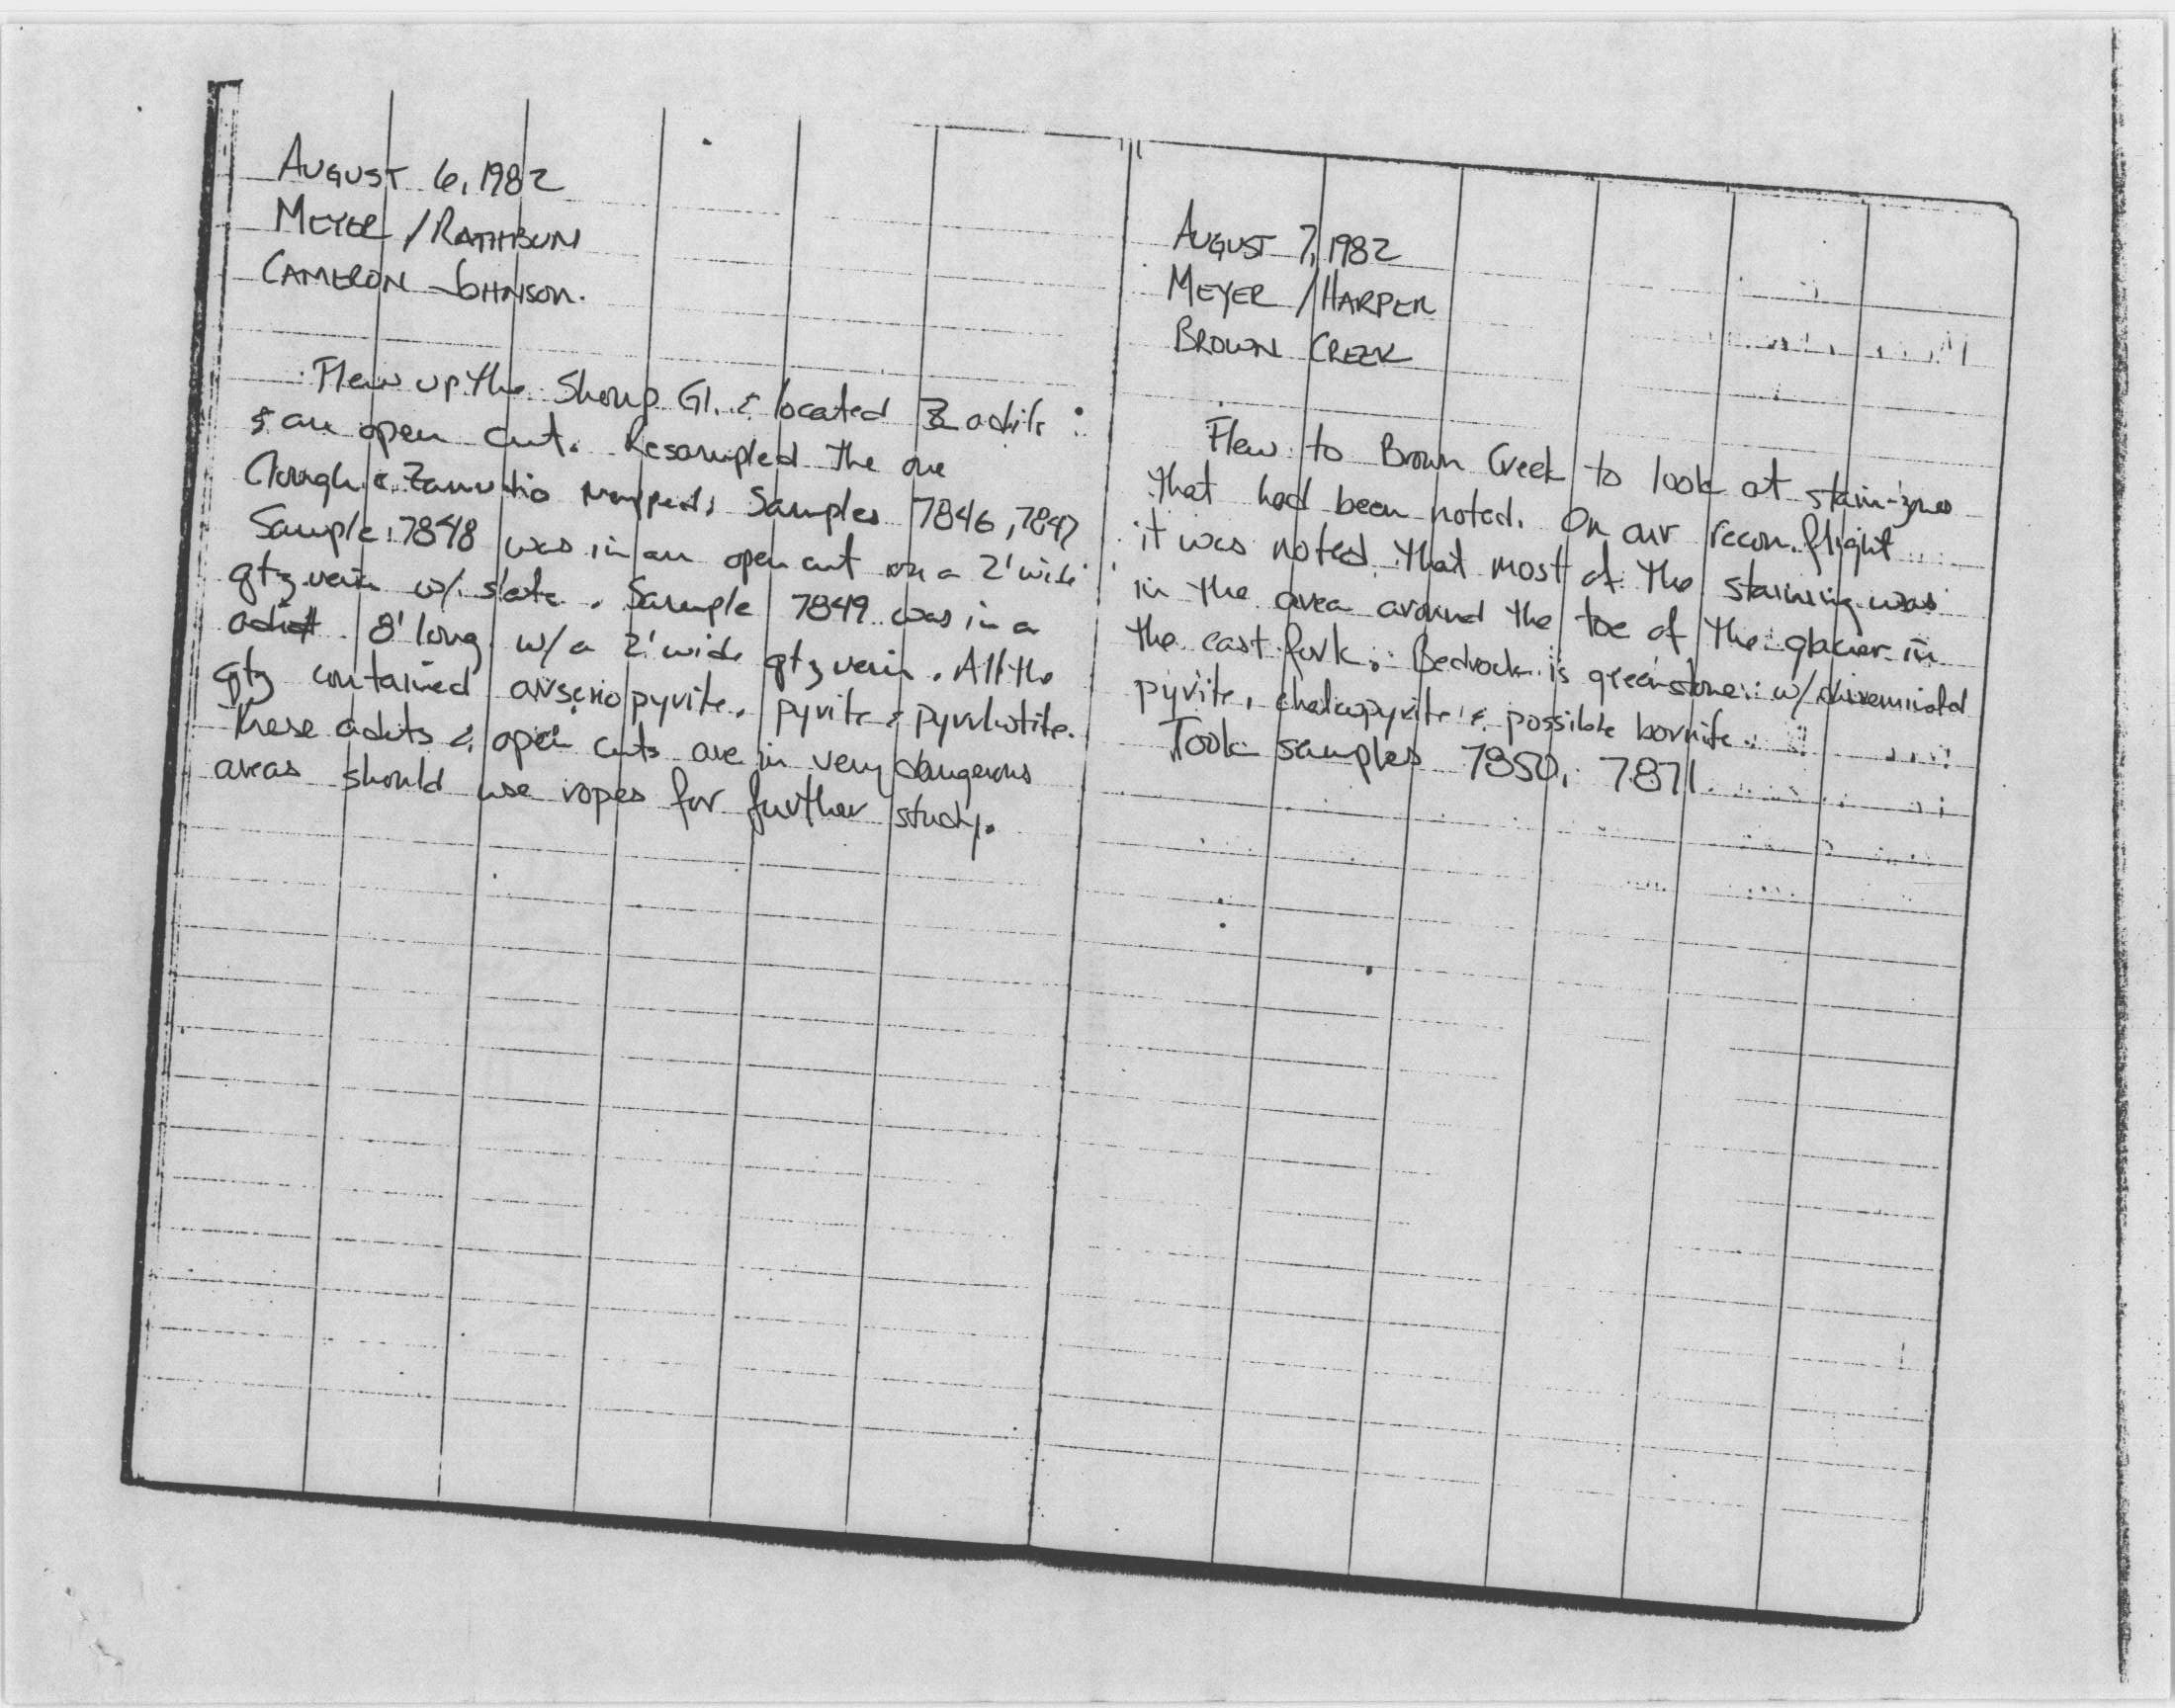 AUGUST 6, 1982
MEYER / RATHBUN
CAMERON JOHNSON.
Flew up the Shoup Gl. & located adits
& an open cut. Resampled the one
Clough & Zanutho mapped. Samples 7846, 7847
Sample 7848 was in an open cut on a 2' wide
qtz vein w/ slate. Sample 7849 was in a
adit 8' long w/ a 2' wide qtz vein. All the
qtz contained arsenopyrite, pyrite & pyrrhotite.
These adits & open cuts are in very dangerous
areas should use ropes for further study.
AUGUST 7, 1982
MEYER / HARPER
BROWN CREEK
Flew to Brown Creek to look at stain-zones
that had been noted. On our recon. flight
it was noted that most of the staining was
in the area around the toe of the glacier in
the east fork. Bedrock is greenstone w/ disseminated
pyrite, chalcopyrite & possible bornite.
Took samples 7850, 7871.